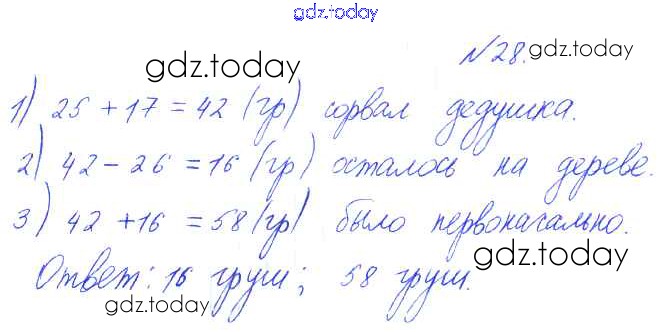 gdz.today
№28. gdz.today
gdz.today
1) 25 + 17 = 42 (гр) сорвал дедушка.
2) 42 - 26 = 16 (гр) осталось на дереве.
3) 42 + 16 = 58 (гр) было первоначально.
gdz.today
Ответ: 16 груш; 58 груш.
gdz.today